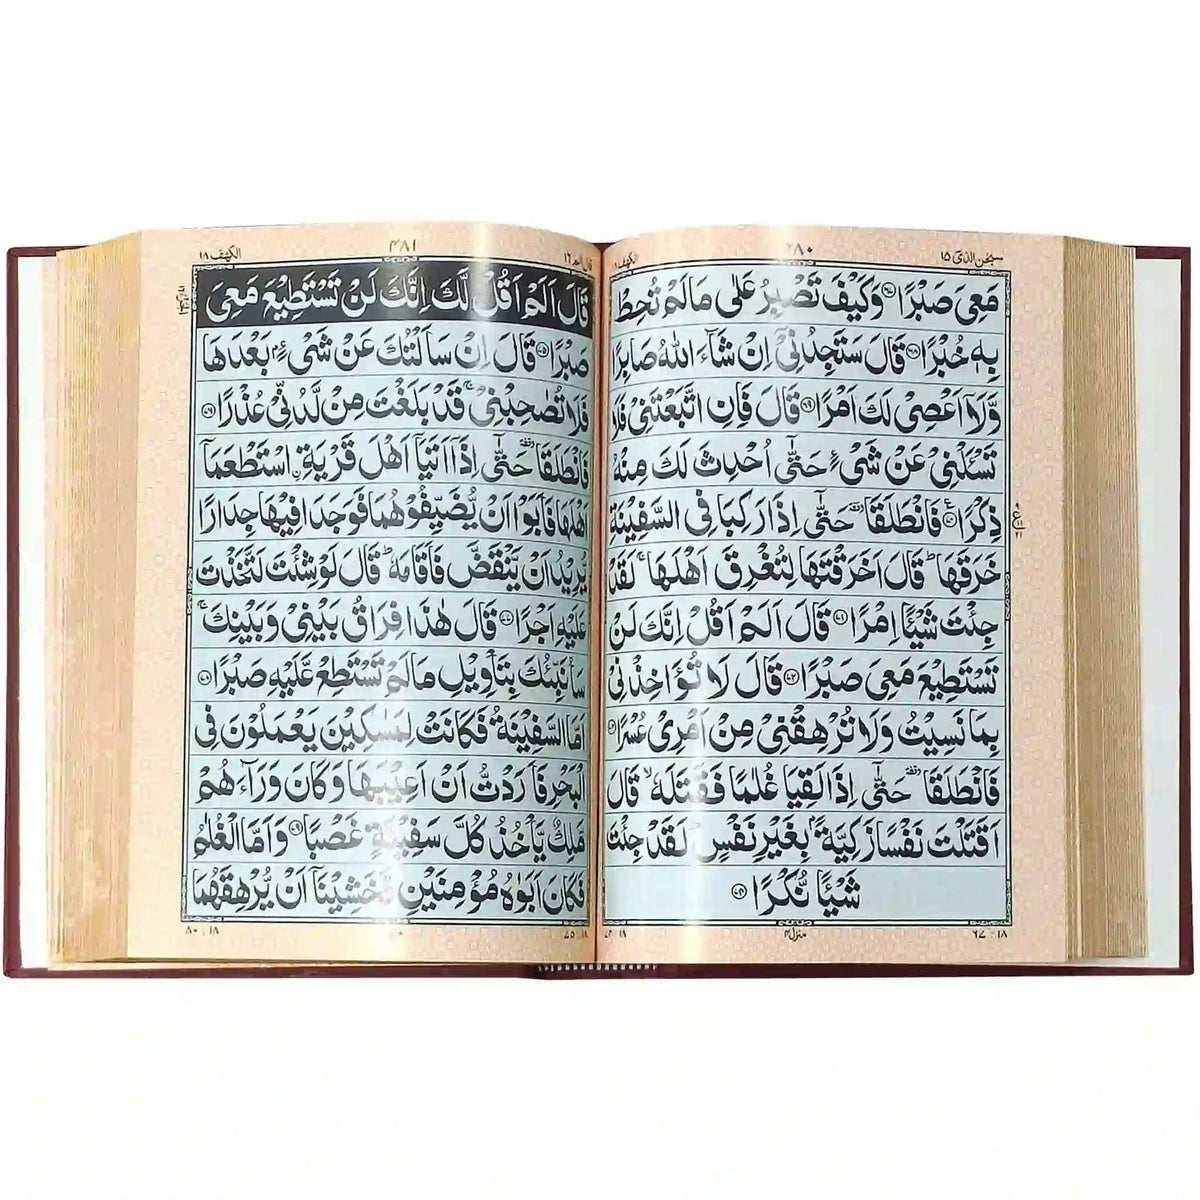 سبحٰن الذی ١٥
٤٨٠
الكهف ١٨
مَعِیَ صَبْرًا ﴿٦٧﴾ وَكَیْفَ تَصْبِرُ عَلٰی مَا لَمْ تُحِطْ
بِهٖ خُبْرًا ﴿٦٨﴾ قَالَ سَتَجِدُنِیْۤ اِنْ شَآءَ اللّٰهُ صَابِرًا
وَّلَاۤ اَعْصِیْ لَكَ اَمْرًا ﴿٦٩﴾ قَالَ فَاِنِ اتَّبَعْتَنِیْ فَلَا
تَسْـَٔلْنِیْ عَنْ شَیْءٍ حَتّٰۤی اُحْدِثَ لَكَ مِنْهُ
ذِكْرًا ﴿٧٠﴾ فَانْطَلَقَا ۥ حَتّٰۤی اِذَا رَكِبَا فِی السَّفِیْنَةِ
خَرَقَهَا ؕ قَالَ اَخَرَقْتَهَا لِتُغْرِقَ اَهْلَهَا ۚ لَقَدْ
جِئْتَ شَیْـًٔا اِمْرًا ﴿٧١﴾ قَالَ اَلَمْ اَقُلْ اِنَّكَ لَنْ
تَسْتَطِیْعَ مَعِیَ صَبْرًا ﴿٧٢﴾ قَالَ لَا تُؤَاخِذْنِیْ
بِمَا نَسِیْتُ وَلَا تُرْهِقْنِیْ مِنْ اَمْرِیْ عُسْرًا ﴿٧٣﴾
فَانْطَلَقَا ۥ حَتّٰۤی اِذَا لَقِیَا غُلٰمًا فَقَتَلَهٗ ۙ قَالَ
اَقَتَلْتَ نَفْسًا زَكِیَّةًۢ بِغَیْرِ نَفْسٍ ؕ لَقَدْ جِئْتَ
شَیْـًٔا نُّكْرًا ﴿٧٤﴾
١٨ : ٦٧
منزل ٤
١٨ : ٧٤
قال الم ١٦
٤٨١
الكهف ١٨
قَالَ اَلَمْ اَقُلْ لَّكَ اِنَّكَ لَنْ تَسْتَطِیْعَ مَعِیَ
صَبْرًا ﴿٧٥﴾ قَالَ اِنْ سَاَلْتُكَ عَنْ شَیْءٍۭ بَعْدَهَا
فَلَا تُصٰحِبْنِیْ ۚ قَدْ بَلَغْتَ مِنْ لَّدُنِّیْ عُذْرًا ﴿٧٦﴾
فَانْطَلَقَا ۥ حَتّٰۤی اِذَاۤ اَتَیَاۤ اَهْلَ قَرْیَةِ ِ۟اسْتَطْعَمَاۤ
اَهْلَهَا فَاَبَوْا اَنْ یُّضَیِّفُوْهُمَا فَوَجَدَا فِیْهَا جِدَارًا
یُّرِیْدُ اَنْ یَّنْقَضَّ فَاَقَامَهٗ ؕ قَالَ لَوْ شِئْتَ لَتَّخَذْتَ
عَلَیْهِ اَجْرًا ﴿٧٧﴾ قَالَ هٰذَا فِرَاقُ بَیْنِیْ وَبَیْنِكَ ۚ
سَاُنَبِّئُكَ بِتَاْوِیْلِ مَا لَمْ تَسْتَطِعْ عَّلَیْهِ صَبْرًا ﴿٧٨﴾
اَمَّا السَّفِیْنَةُ فَكَانَتْ لِمَسٰكِیْنَ یَعْمَلُوْنَ فِی
الْبَحْرِ فَاَرَدْتُّ اَنْ اَعِیْبَهَا وَكَانَ وَرَآءَهُمْ
مَّلِكٌ یَّاْخُذُ كُلَّ سَفِیْنَةٍ غَصْبًا ﴿٧٩﴾ وَاَمَّا الْغُلٰمُ
فَكَانَ اَبَوٰهُ مُؤْمِنَیْنِ فَخَشِیْنَاۤ اَنْ یُّرْهِقَهُمَا
١٨ : ٧٥
١٨ : ٨٠